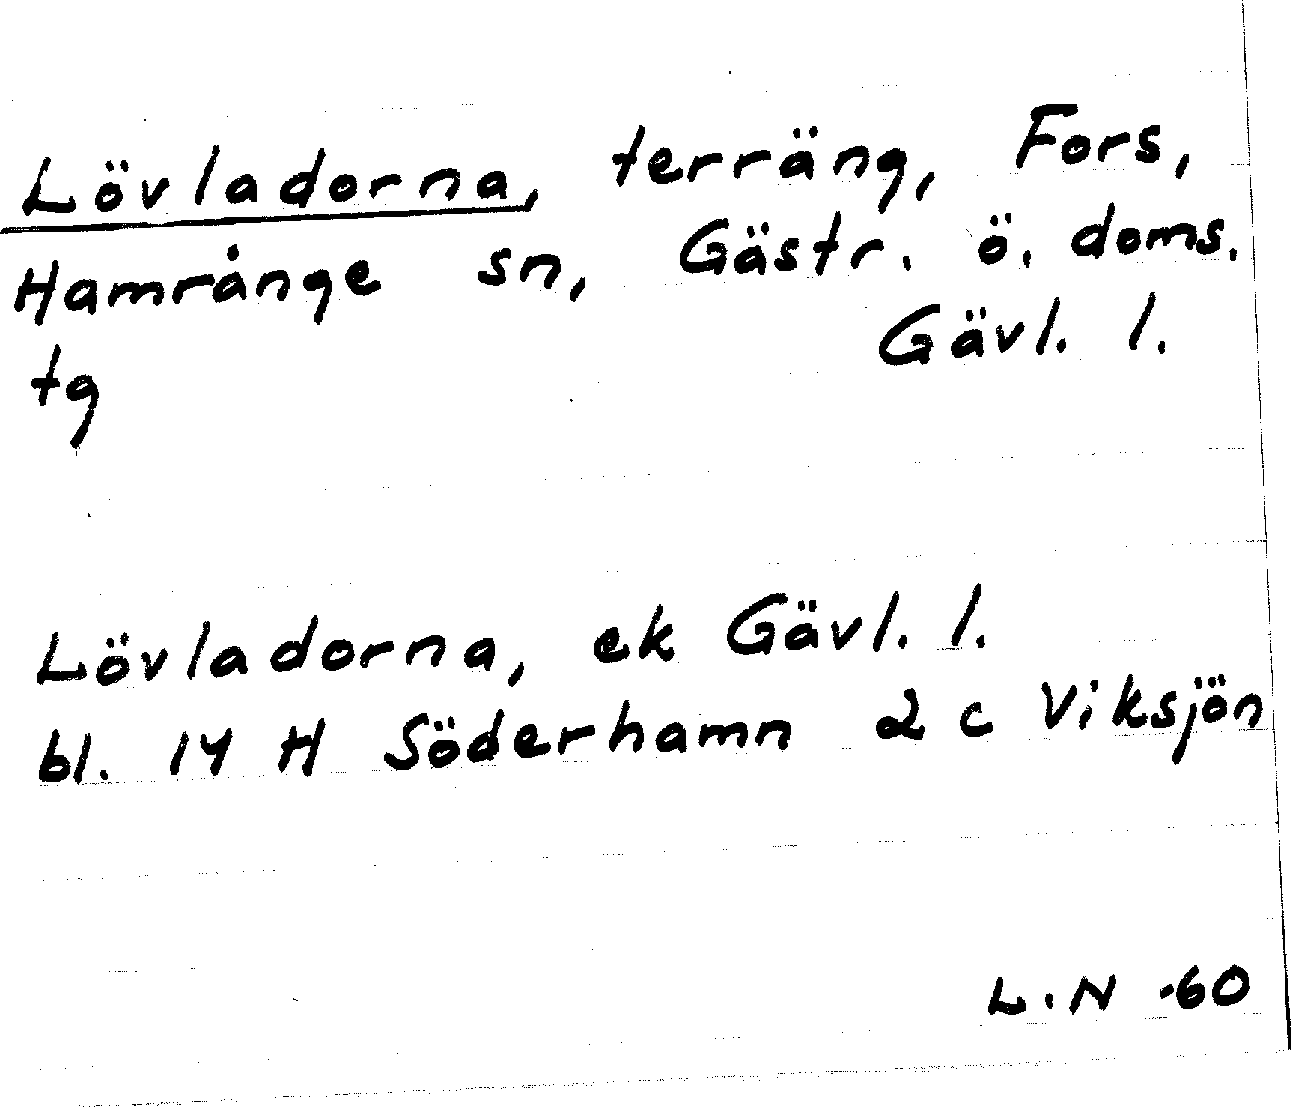 Lövladorna, terräng, Fors,
Hamrånge sn, Gästr. ö. doms.
Gävl. l.
tg
Lövladorna, ek Gävl. l.
bl. 14 H Söderhamn 2 c Viksjön
L.N -60